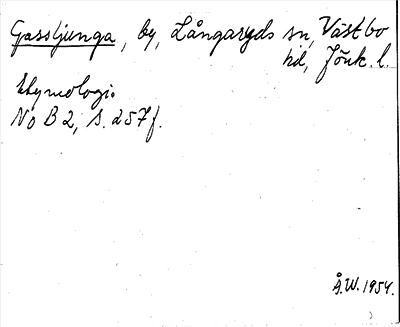 Gassljunga, by, Långaryds sn, Västbo
hd, Jönk. l.
Etymologi.
No B 2, s. 257f.
Å.W. 1954.